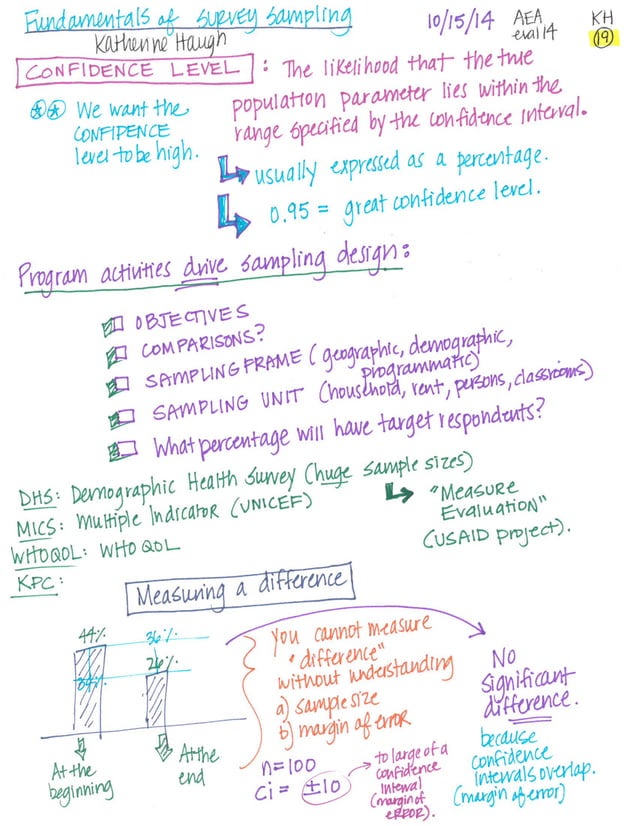 Fundamentals of SURVEY SAMPLING
10/15/14
AEA
eval 14
KH
19
Katherine Haugh
CONFIDENCE LEVEL : The likelihood that the true
population parameter lies within the
range specified by the confidence interval.
We want the
CONFIDENCE
level to be high.
usually expressed as a percentage.
0.95 = great confidence level.
Program activities drive sampling design:
OBJECTIVES
COMPARISONS?
SAMPLING FRAME (geographic, demographic,
programmatic)
SAMPLING UNIT (household, rent, persons, classrooms)
What percentage will have target respondents?
DHS: Demographic Health Survey (huge sample sizes)
MICS: Multiple Indicator (UNICEF)
WHOQOL: WHO QOL
KPC:
"Measure
Evaluation"
(USAID project).
Measuring a difference
44%
36%
26%
34%
At the
beginning
At the
end
You cannot measure
"difference"
without understanding
a) sample size
b) margin of error
n=100
ci = ±10
to large of a
confidence
interval
(margin of
ERROR).
No
significant
difference.
because
confidence
intervals overlap.
(margin of error)